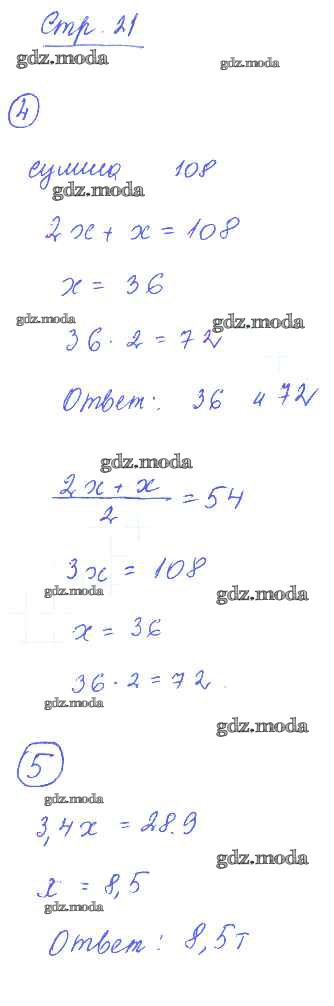 Стр. 21
gdz.moda gdz.moda
4
сумма 108
gdz.moda
2x + x = 108
x = 36
gdz.moda gdz.moda
36 · 2 = 72
Ответ: 36 и 72
gdz.moda
2x + x
= 54
2
3x = 108
gdz.moda gdz.moda
x = 36
36 · 2 = 72
gdz.moda
gdz.moda
5
gdz.moda
3,4x = 28.9
gdz.moda
x = 8,5
gdz.moda
Ответ: 8,5т